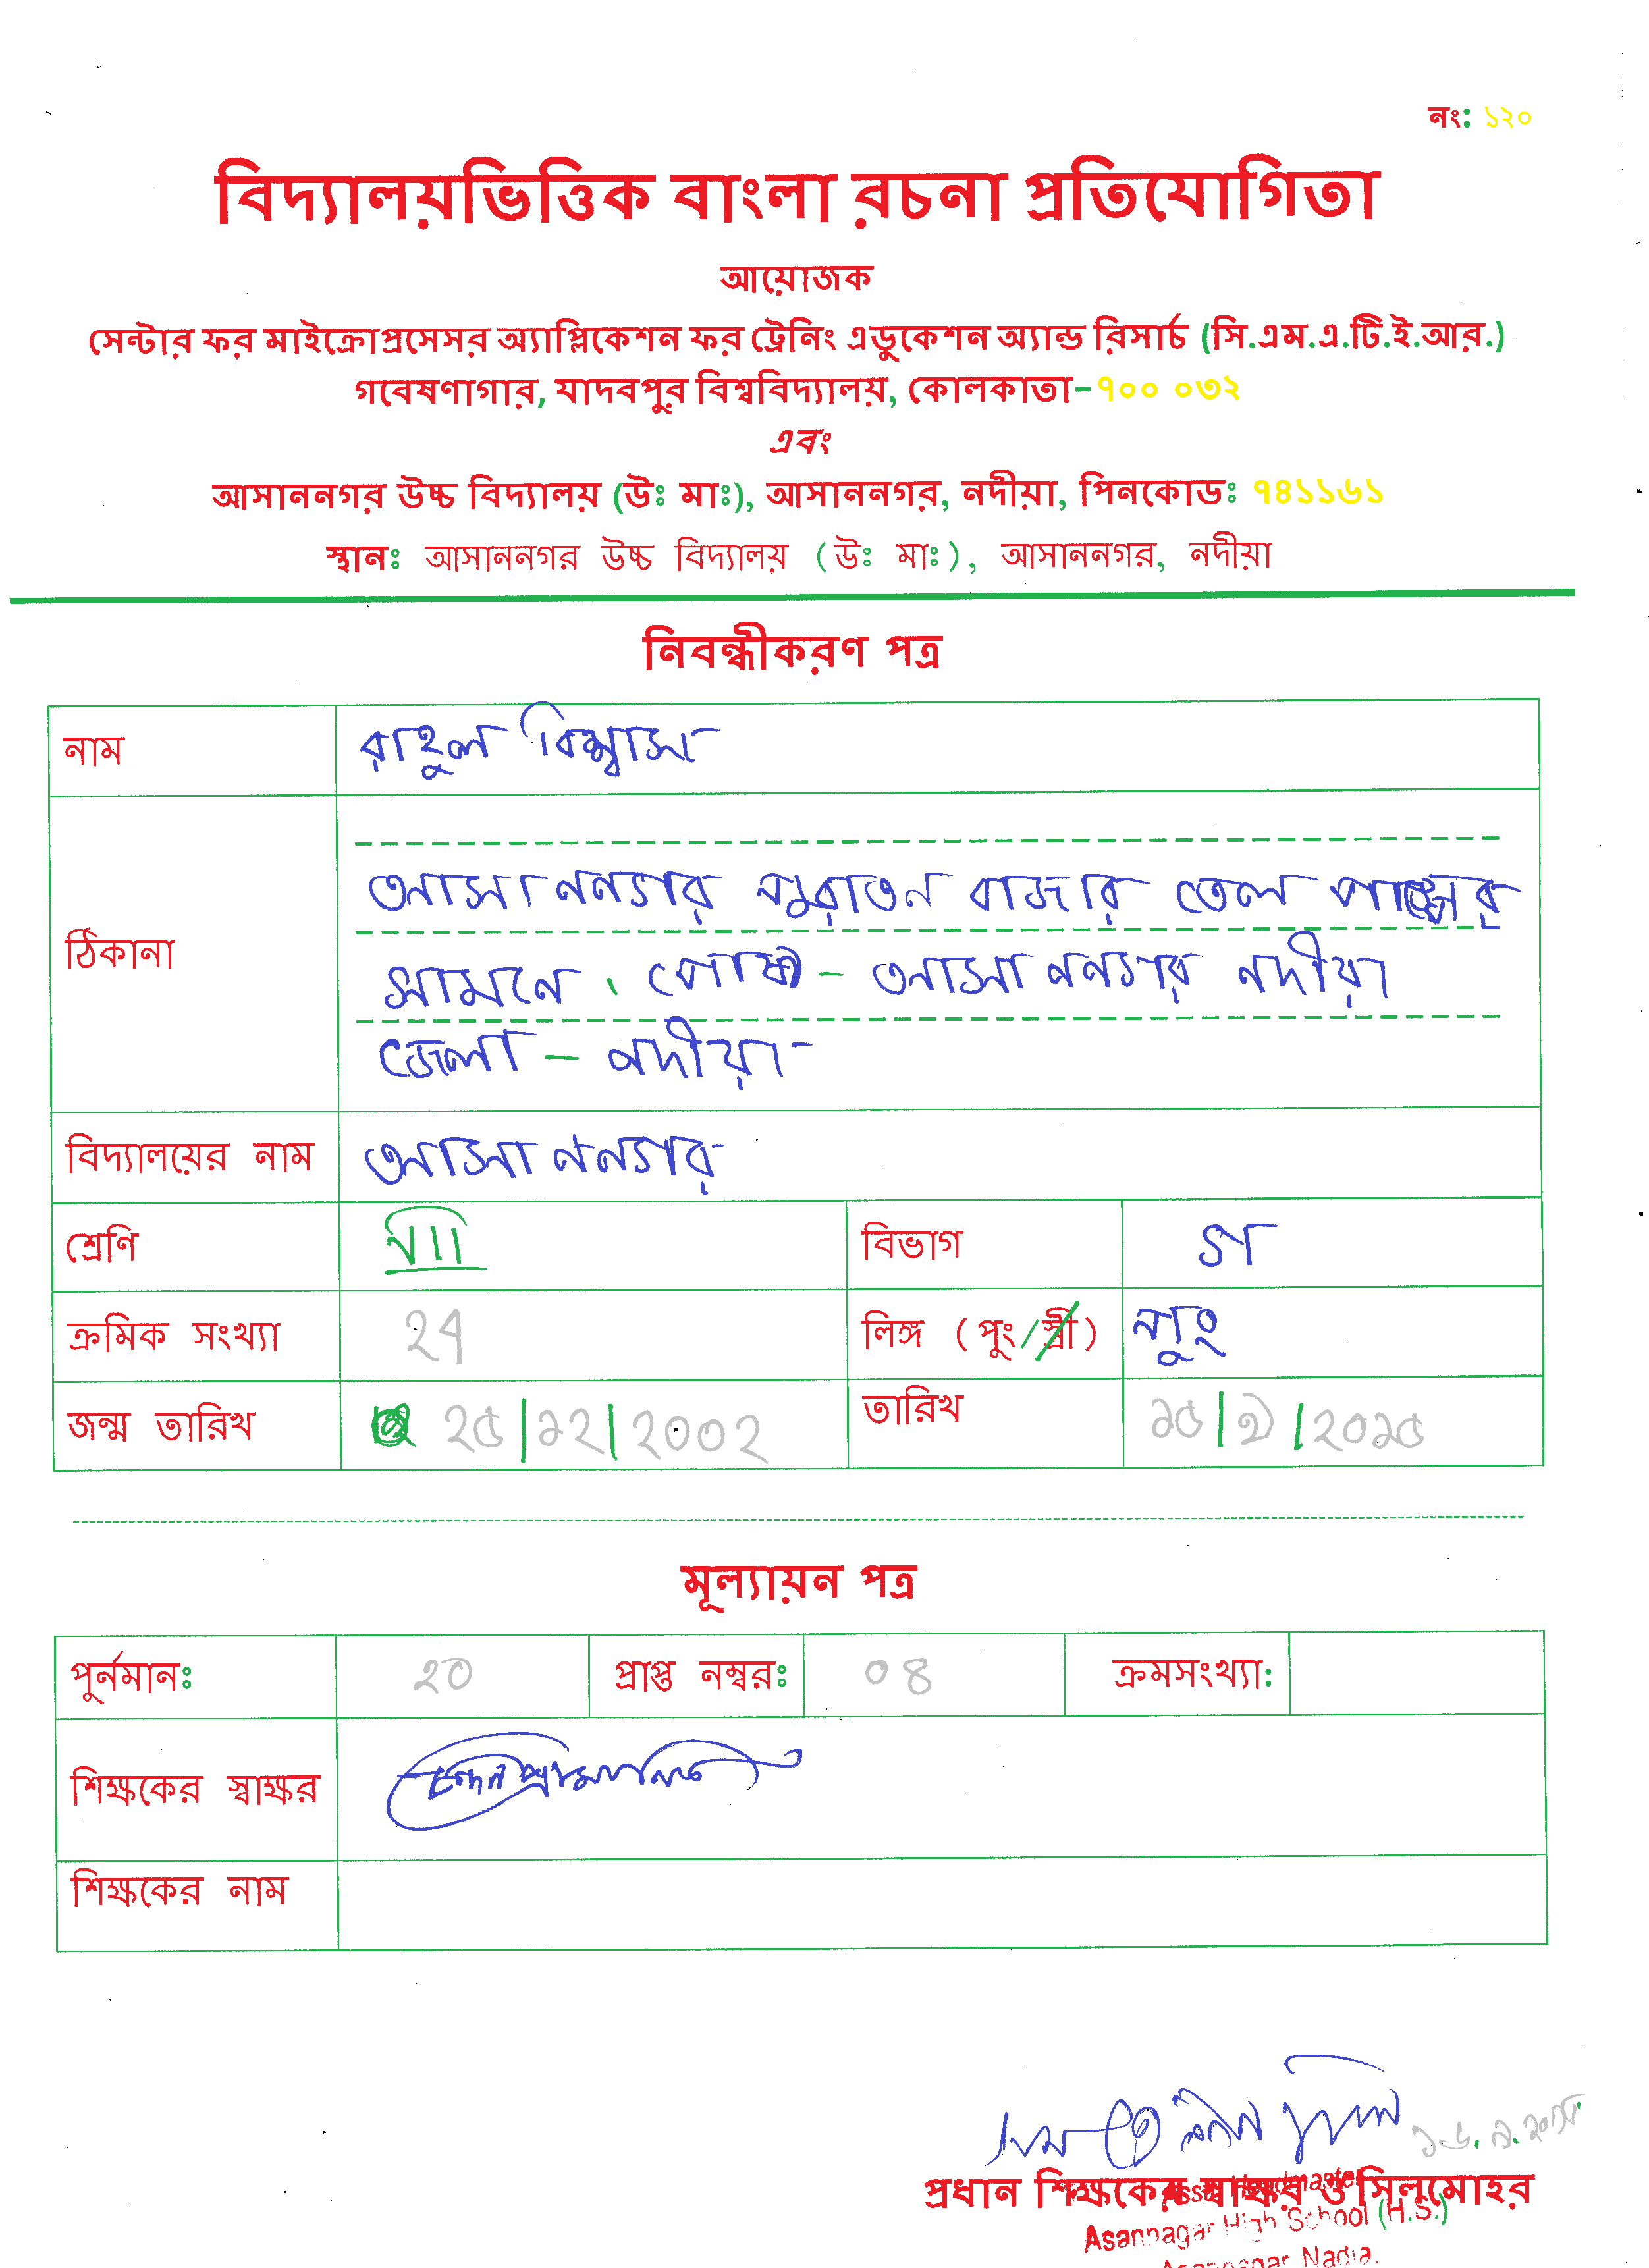 নং: ১২০
বিদ্যালয়ভিত্তিক বাংলা রচনা প্রতিযোগিতা
আয়োজক
সেন্টার ফর মাইক্রোপ্রসেসর অ্যাপ্লিকেশন ফর ট্রেনিং এডুকেশন অ্যান্ড রিসার্চ (সি.এম.এ.টি.ই.আর.)
গবেষণাগার, যাদবপুর বিশ্ববিদ্যালয়, কোলকাতা-৭০০ ০৩২
এবং
আসাননগর উচ্চ বিদ্যালয় (উঃ মাঃ), আসাননগর, নদীয়া, পিনকোডঃ ৭৪১১৬১
স্থানঃ আসাননগর উচ্চ বিদ্যালয় (উঃ মাঃ), আসাননগর, নদীয়া
নিবন্ধীকরণ পত্র
নাম রাহুল বিশ্বাস
ঠিকানা
আসাননগর পুরাতন বাজার তেল পাম্পের
সামনে। পোষ্ট - আসাননগর নদীয়া
জেলা - নদীয়া
বিদ্যালয়ের নাম আসাননগর
শ্রেণি VII বিভাগ গ
ক্রমিক সংখ্যা ২৭ লিঙ্গ (পুং/স্ত্রী) পুং
জন্ম তারিখ ২৫|১২|২০০২ তারিখ ১৫|৯|২০১৫
মূল্যায়ন পত্র
পুর্নমানঃ ২০ প্রাপ্ত নম্বরঃ ০৪ ক্রমসংখ্যা:
শিক্ষকের স্বাক্ষর
শিক্ষকের নাম
১৬.৯.২০১৫
প্রধান শিক্ষকের স্বাক্ষর ও সিলমোহর
Asst. Headmaster
Asannagar High School (H.S.)
Asannagar, Nadia.